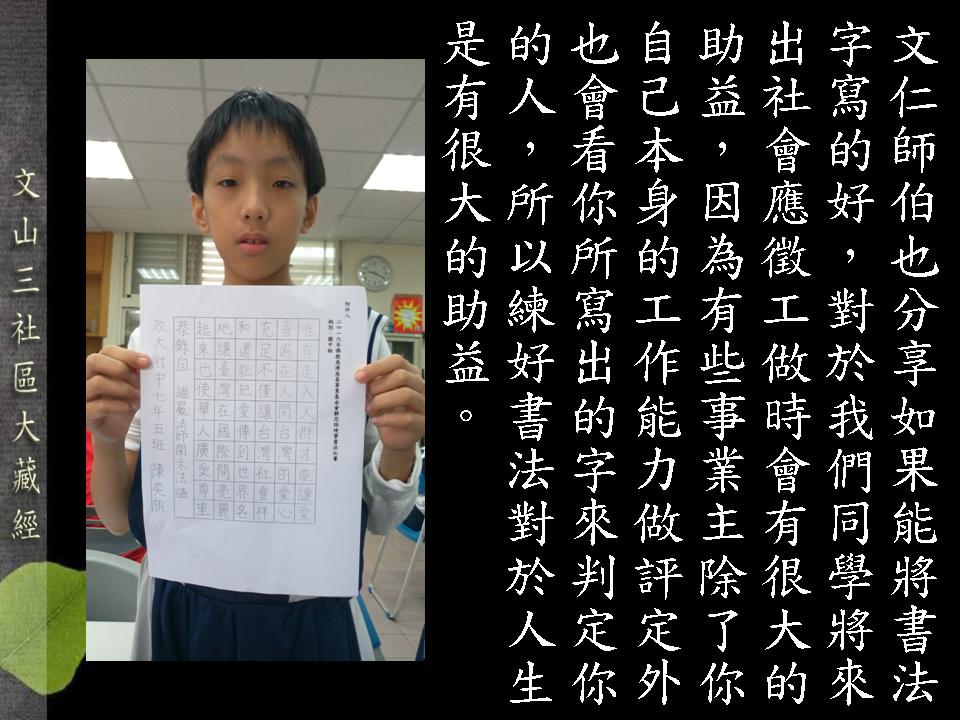 文仁師伯也分享如果能將書法
字寫的好，對於我們同學將來
出社會應徵工做時會有很大的
助益，因為有些事業主除了你
自己本身的工作能力做評定外
也會看你所寫出的字來判定你
的人，所以練好書法對於人生
是有很大的助益。
附件八
二〇一六年佛教慈濟慈善事業基金會靜思語硬筆書法比賽
組別：國中組
唯有走入人群才能讓愛
善遍佈人間台灣的愛心
充足不僅讓台灣社會祥
和還能把愛傳到世界各
地讓臺灣在國際間亮麗
起來也使華人廣受尊重
恭錄自 證嚴法師開示法語
政大附中七年五班 陳奕帆
文山三社區大藏經